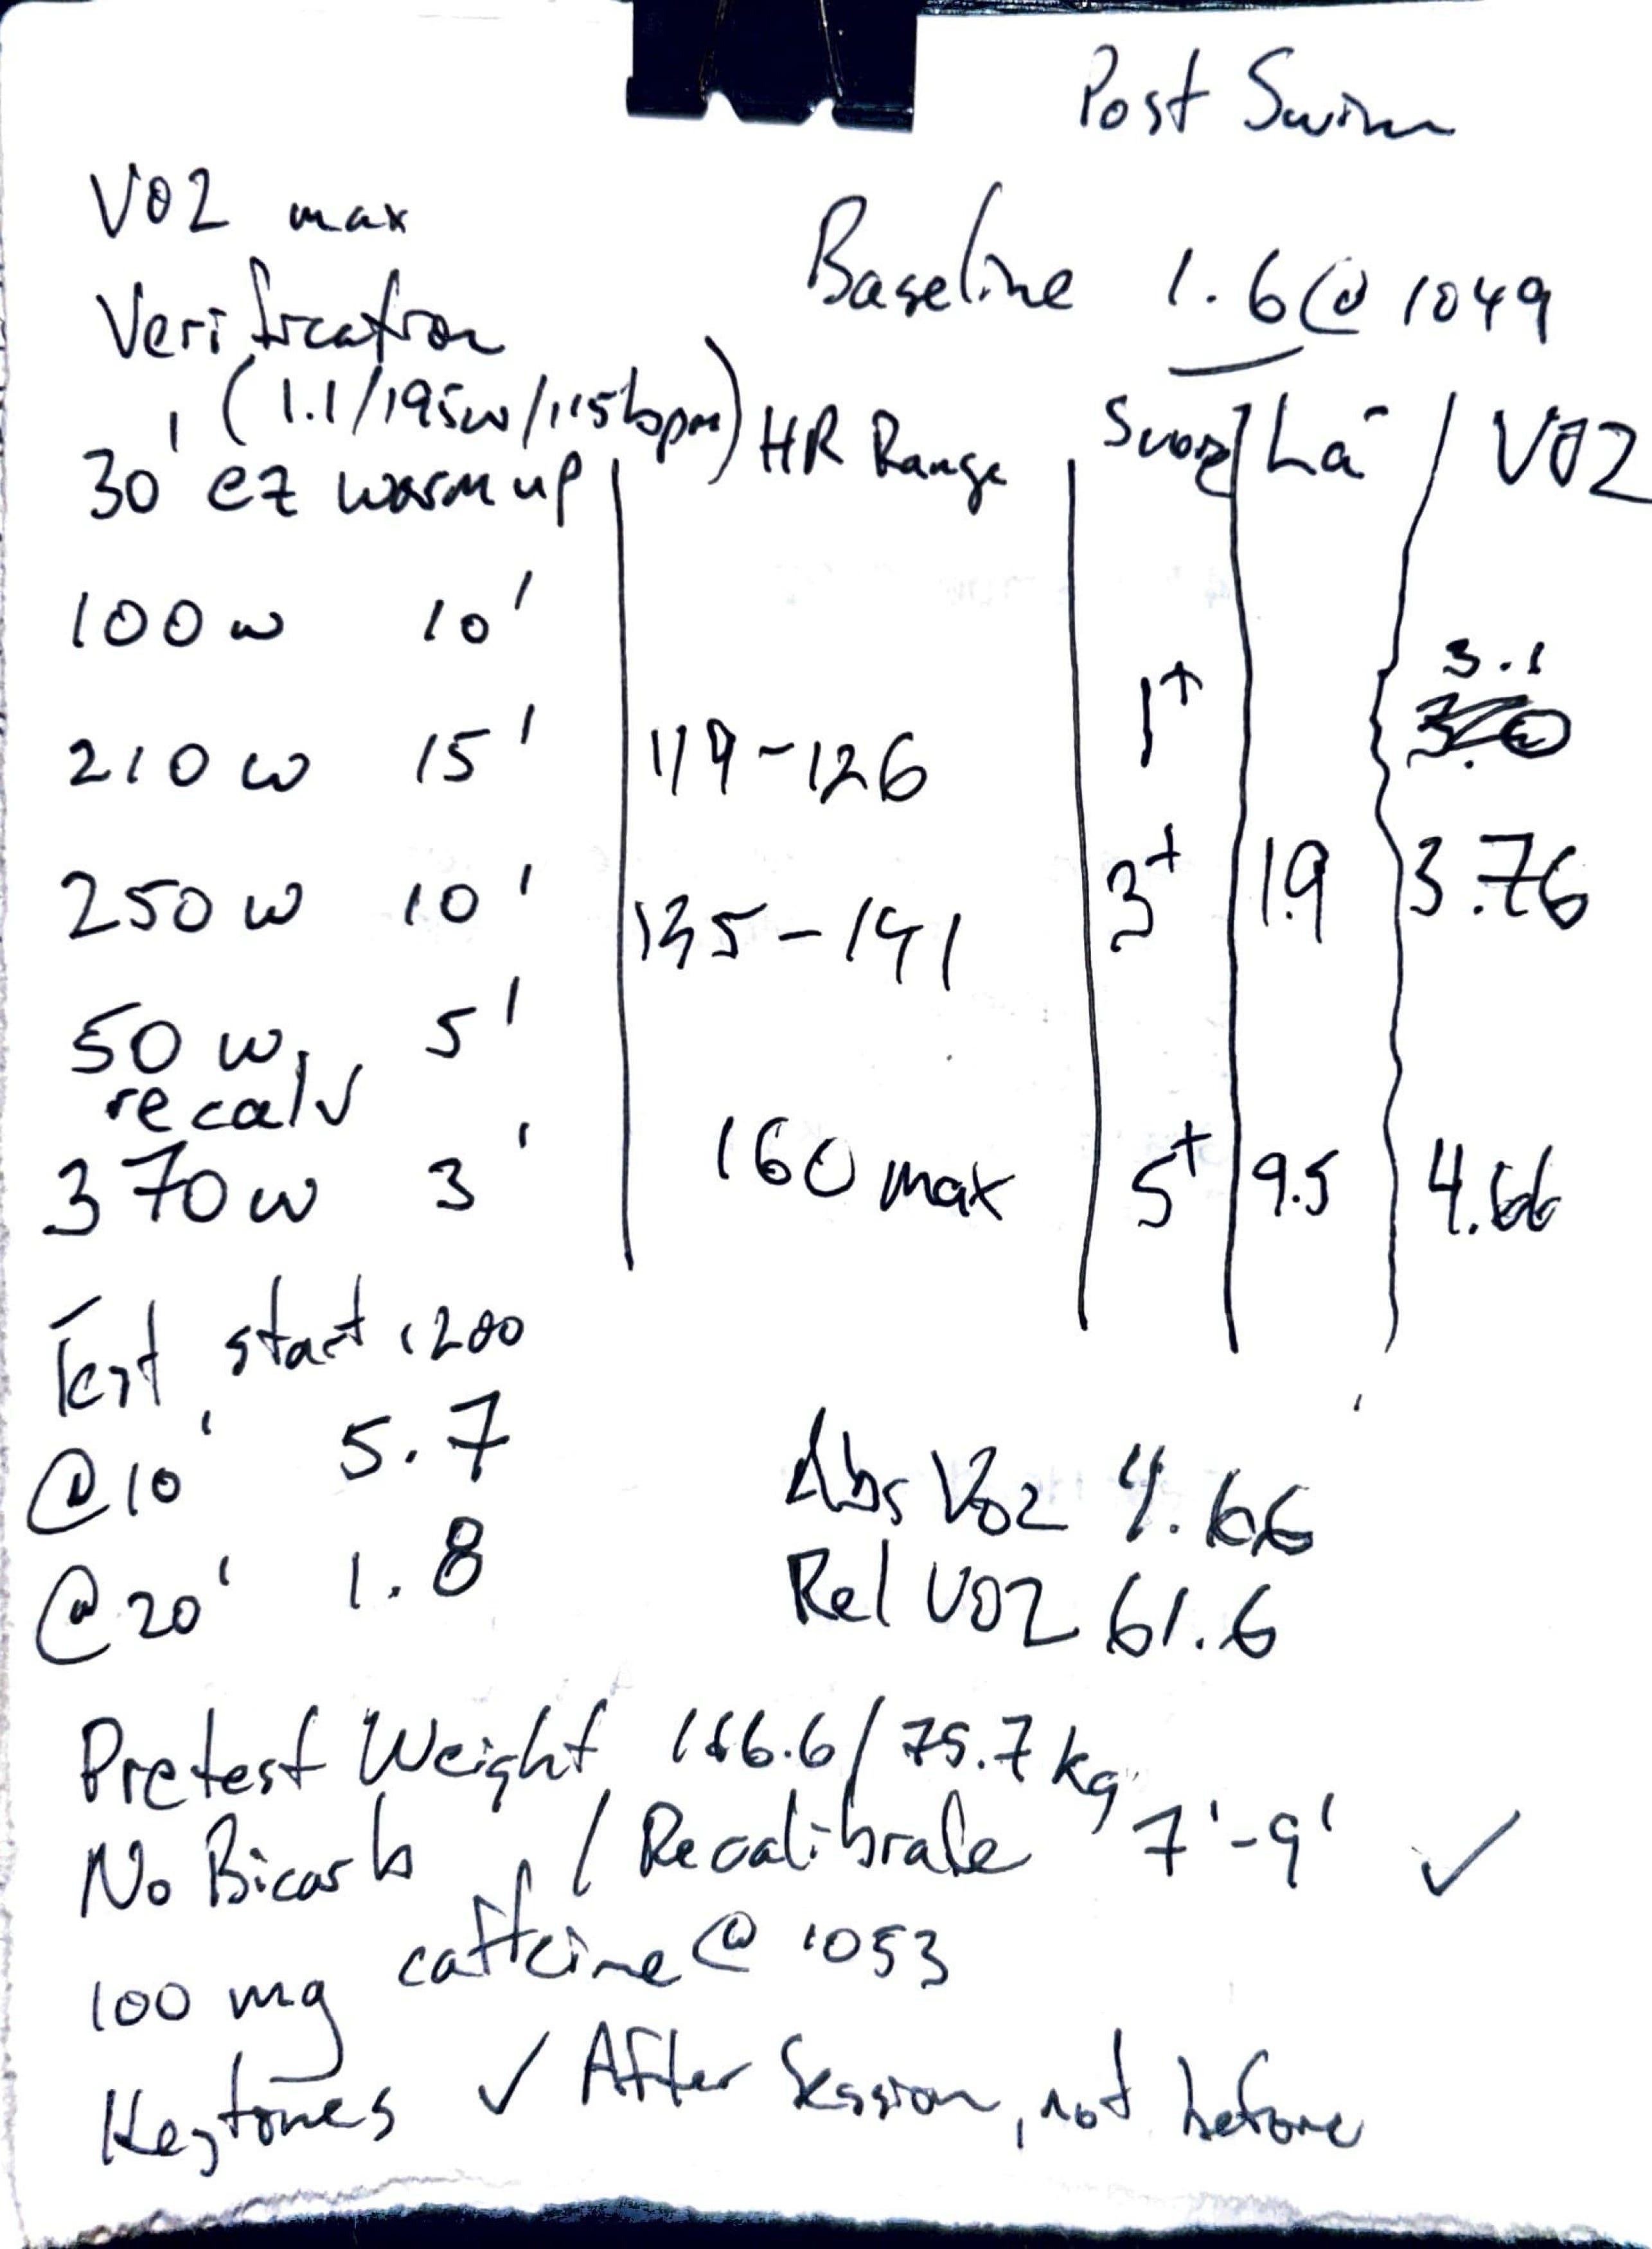 Post Swim
VO2 max
Verification
Baseline 1.6 @ 1049
(1.1/195w/115bpm)
30' ez warm up | HR Range | / La- / VO2
100 w 10'
210 w 15' | 119-126 | 1+ | | 3.1
250 w 10' | 135-141 | 3+ | 1.9 | 3.76
50 w 5'
recal √
370 w 3' | 160 max | 5+ | 9.5 | 4.66
Test start 1200
@10' 5.7
@20' 1.8
Abs VO2 4.66
Rel VO2 61.6
Pretest Weight 166.6/75.7 kg
No Bicarb / Recalibrate 7'-9' ✓
100 mg caffeine @ 1053
Keytones ✓ After Session, not before